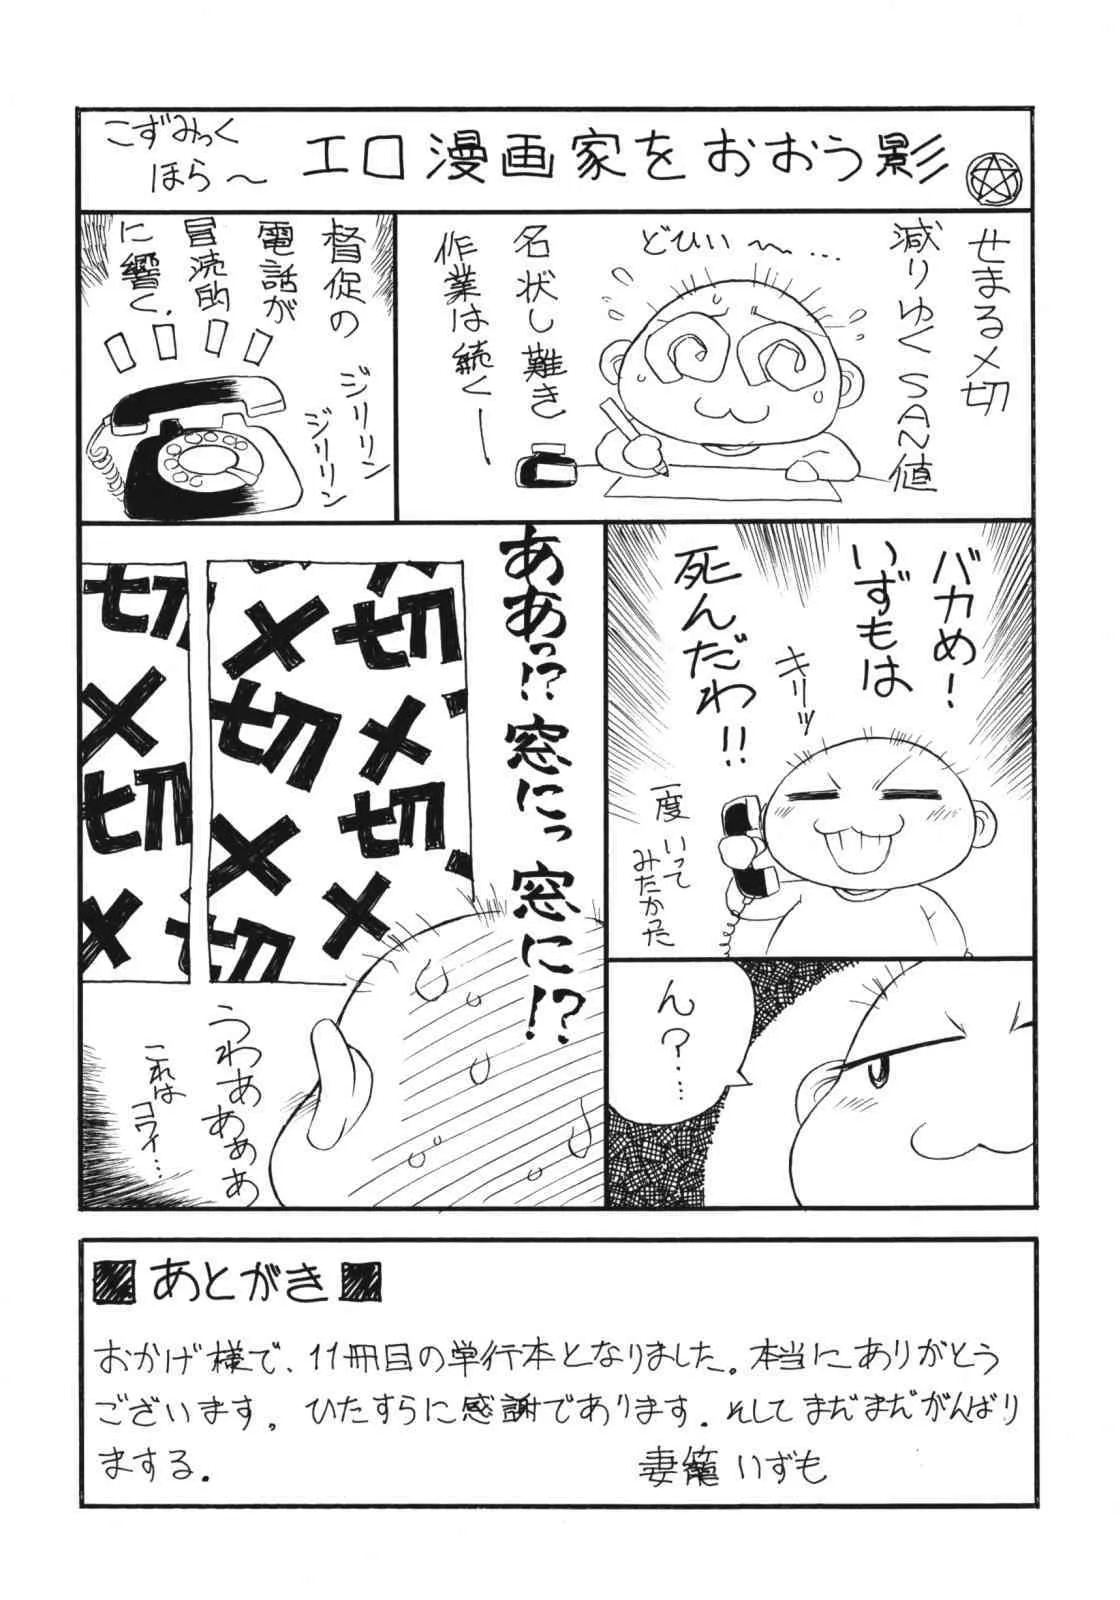 こずみっく
ほら〜
エロ漫画家をおおう影
せまる〆切
減りゆくSAN値
どひぃ〜…
名状し難き
作業は続く―
督促の
電話が
冒涜的
に響く.
ジリリン
ジリリン
バカめ!
いずもは
死んだわ!!
キリッ
一度いって
みたかった
ん?…
ああっ!?窓にっ窓に!?
〆切
〆切
〆切
〆切
〆切
うわあああぁ
これは
コワイ…
■あとがき■
おかげ様で、11冊目の単行本となりました。本当にありがとう
ございます。ひたすらに感謝であります.そしてまだまだがんばり
まする.
妻籠いずも